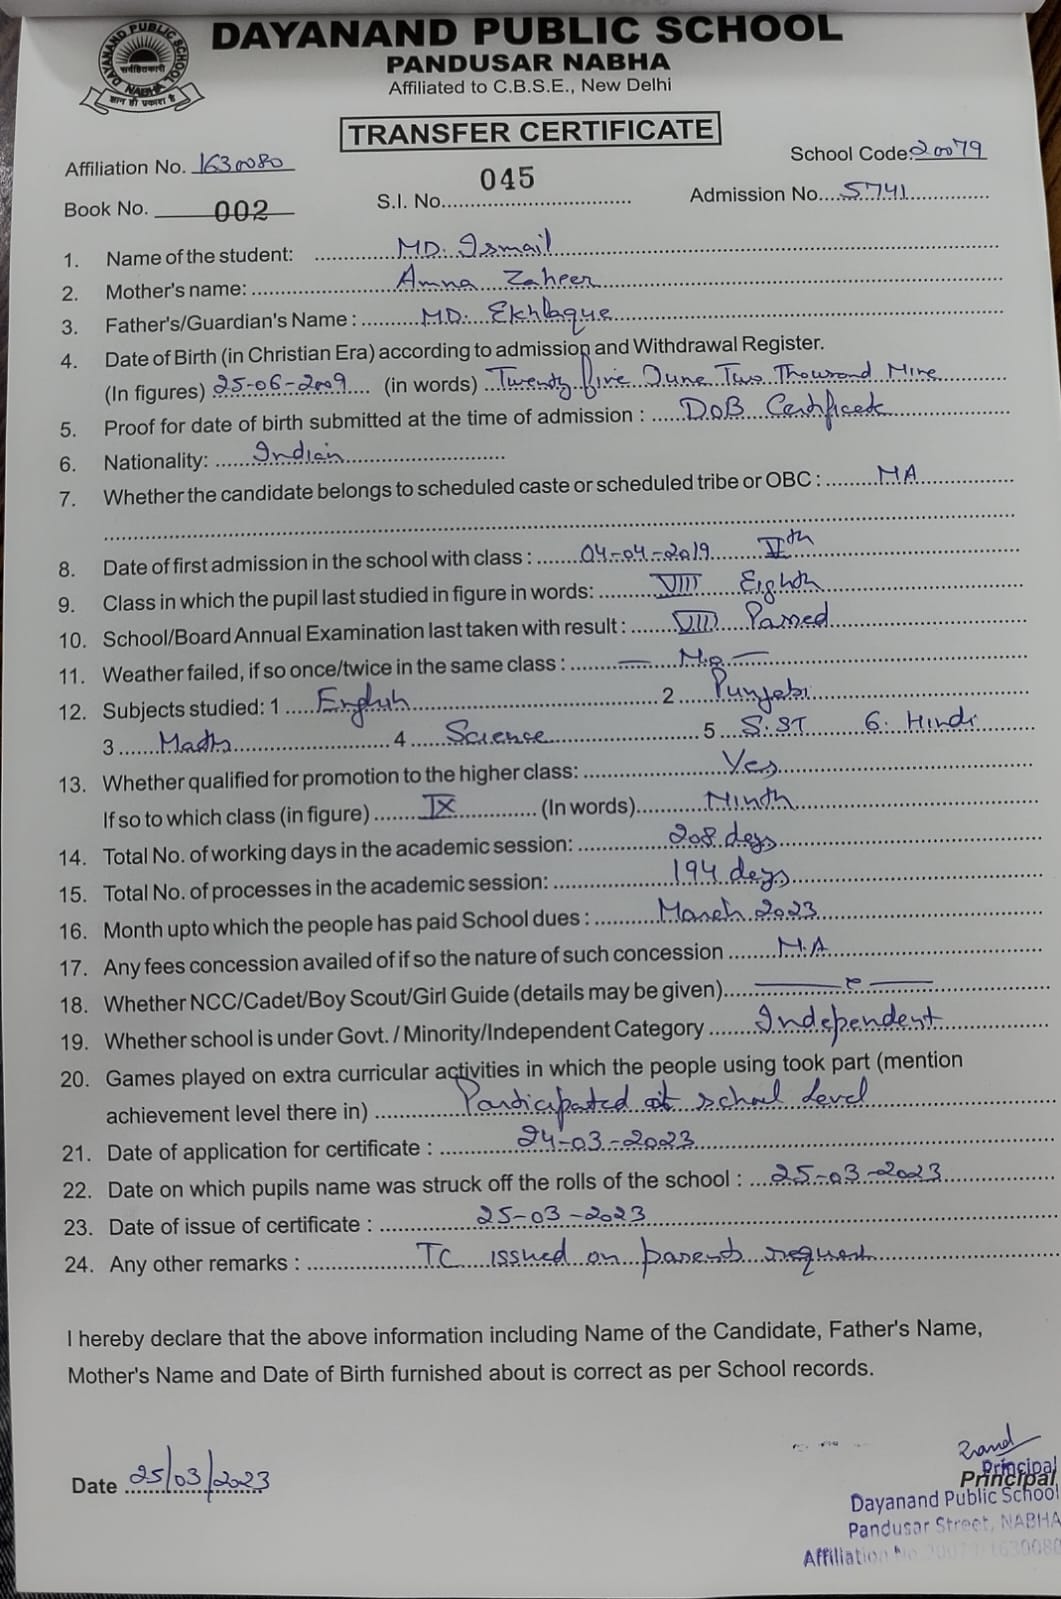 DAYANAND PUBLIC SCHOOL
DAYANAND PUBLIC SCHOOL
PANDUSAR NABHA
NABHA
ज्ञान ही प्रकाश है
Affiliated to C.B.S.E., New Delhi
TRANSFER CERTIFICATE
Affiliation No. 1630080
School Code: 20079
Book No. 002
S.I. No. 045
Admission No. 5741
1. Name of the student: MD. Ismail
2. Mother's name: Amna Zaheer
3. Father's/Guardian's Name : MD. Ekhlaque
4. Date of Birth (in Christian Era) according to admission and Withdrawal Register.
(In figures) 25-06-2009 (in words) Twenty five June Two Thousand Nine
5. Proof for date of birth submitted at the time of admission : DoB Certificate
6. Nationality: Indian
7. Whether the candidate belongs to scheduled caste or scheduled tribe or OBC : NA
8. Date of first admission in the school with class : 04-04-2019 Vth
9. Class in which the pupil last studied in figure in words: VIII Eighth
10. School/Board Annual Examination last taken with result : VIII Passed
11. Weather failed, if so once/twice in the same class : — No —
12. Subjects studied: 1 English 2 Punjabi
3 Maths 4 Science 5 S.ST 6. Hindi
13. Whether qualified for promotion to the higher class: Yes
If so to which class (in figure) IX (In words) Ninth
14. Total No. of working days in the academic session: 208 days
15. Total No. of processes in the academic session: 194 days
16. Month upto which the people has paid School dues : March 2023
17. Any fees concession availed of if so the nature of such concession N.A
18. Whether NCC/Cadet/Boy Scout/Girl Guide (details may be given)
19. Whether school is under Govt. / Minority/Independent Category Independent
20. Games played on extra curricular activities in which the people using took part (mention
achievement level there in) Participated at school level
21. Date of application for certificate : 24-03-2023
22. Date on which pupils name was struck off the rolls of the school : 25-03-2023
23. Date of issue of certificate : 25-03-2023
24. Any other remarks : TC issued on parents request
I hereby declare that the above information including Name of the Candidate, Father's Name,
Mother's Name and Date of Birth furnished about is correct as per School records.
Date 25/03/2023
Principal
Principal
Dayanand Public School
Pandusar Street, NABHA
Affiliation No. 20079/1630080